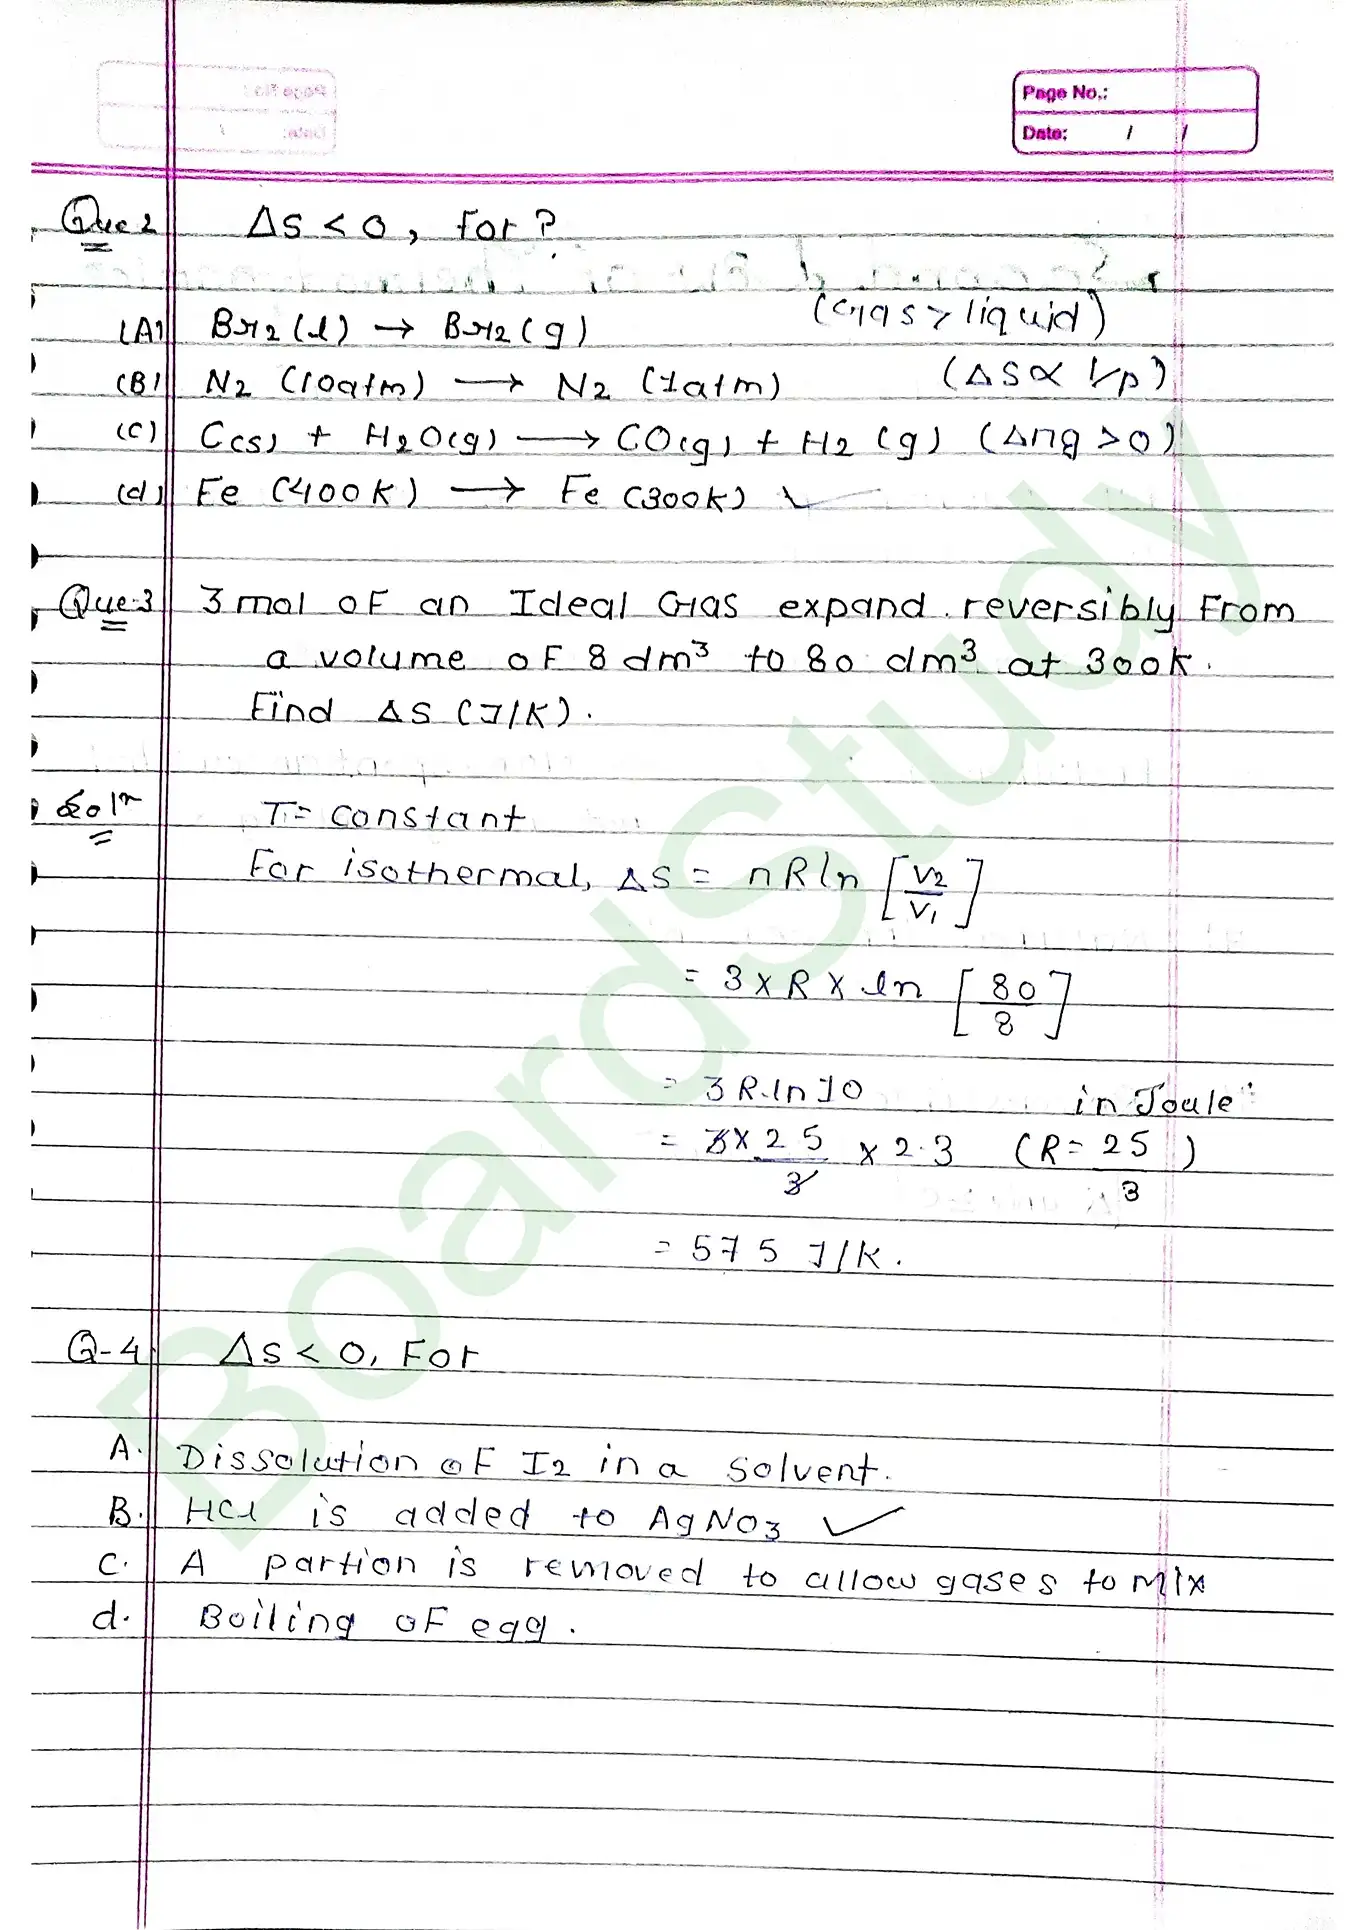 Page No.:
Date: / /
Que 2 ΔS < 0, for?
(A) Br2 (l) → Br2 (g) (Gas > liquid)
(B) N2 (10atm) → N2 (1atm) (ΔS ∝ 1/p)
(C) C(s) + H2O(g) → CO(g) + H2 (g) (Δng > 0)
(d) Fe (400K) → Fe (300K) ✓
Que.3 3 mol of an Ideal Gas expand reversibly From
a volume of 8 dm³ to 80 dm³ at 300K.
Find ΔS (J/K).
Solⁿ T = constant
For isothermal, ΔS = nRln [V2/V1]
= 3 x R x ln [80/8]
= 3R.ln10 in Joule
= 3 x 25/3 x 2.3 (R = 25/3)
= 575 J/K.
Q-4 ΔS < 0, For
A. Dissolution of I2 in a solvent.
B. HCl is added to AgNO3 ✓
C. A partion is removed to allow gases to mix
d. Boiling of egg.
BoardStudy